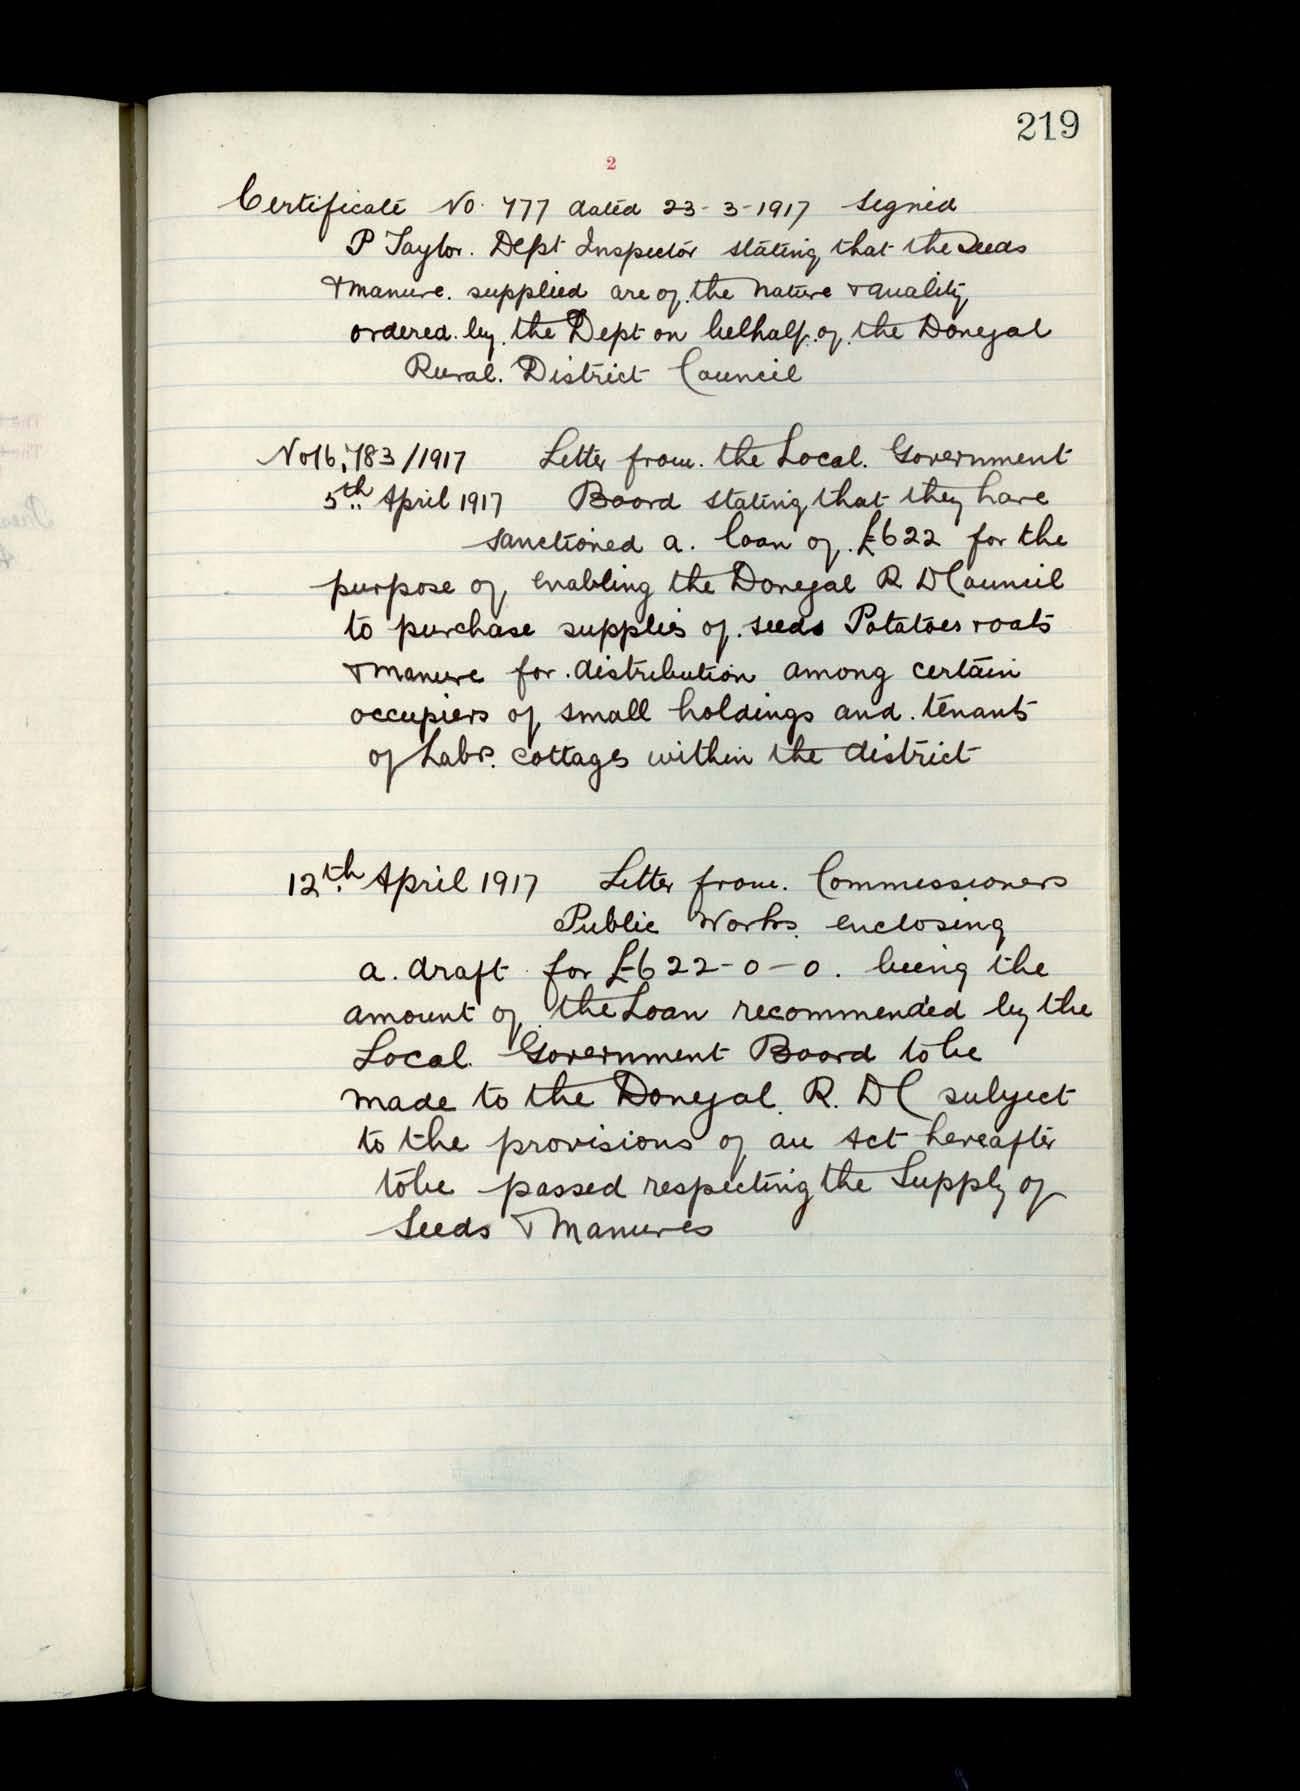 219
2
Certificate No. 777 dated 23-3-1917 signed
P Taylor. Dept Inspector stating that the Seeds
& manure. supplied are of the nature & quality
ordered by the Dept on belhalf of the Donegal
Rural. District Council
No 16,783/1917 Letter from the Local. Government
5th April 1917 Board stating that they have
sanctioned a. loan of £622 for the
purpose of enabling the Donegal R D Council
to purchase supplies of seeds Potatoes & oats
& manure for distribution among certain
occupiers of small holdings and tenants
of Labr. cottages within the district
12th April 1917 Letter from. Commissioners
Public Works enclosing
a. draft for £622-0-0. being the
amount of the Loan recommended by the
Local. Government Board to be
made to the Donegal. R. D C subject
to the provisions of an Act hereafter
to be passed respecting the Supply of
Seeds & Manures